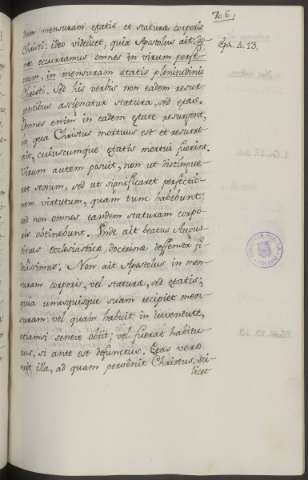 tum mensuram etatis et statura corporis
Christi: ideo videlicet, quia Apostolus ait
occurramus omnes in virum perfe
tum, in mensuram etatis plenitudinis
Christi. Sed his verbis non eadem resur
gentibus assignatur statura, sed etas.
Omnes enim in eadem etate resurgent,
in qua Christus mortuus est et resurre
xit, cuiuscumque etatis mortui fuerint.
Virum autem posuit, non ut distingue
ret sexum, sed ut significaret perfectio
nem virtutum, quam tunc habebunt;
sed non omnes eandem staturam corpo
ris obtinebunt. Unde ait beatus Augus
tinus ecclesiastice doctrine deffensor fi
delissimus. Non ait Apostolus in men
suram corporis, vel stature, sed etatis;
quia unusquisque suam recipiet men
suram; vel quam habuit in iuventute,
etiamsi senex obiit; vel fuerat habitu
rus, si ante est defunctus. Etas vero
erit illa, ad quam pervenit Christus, sci
licet